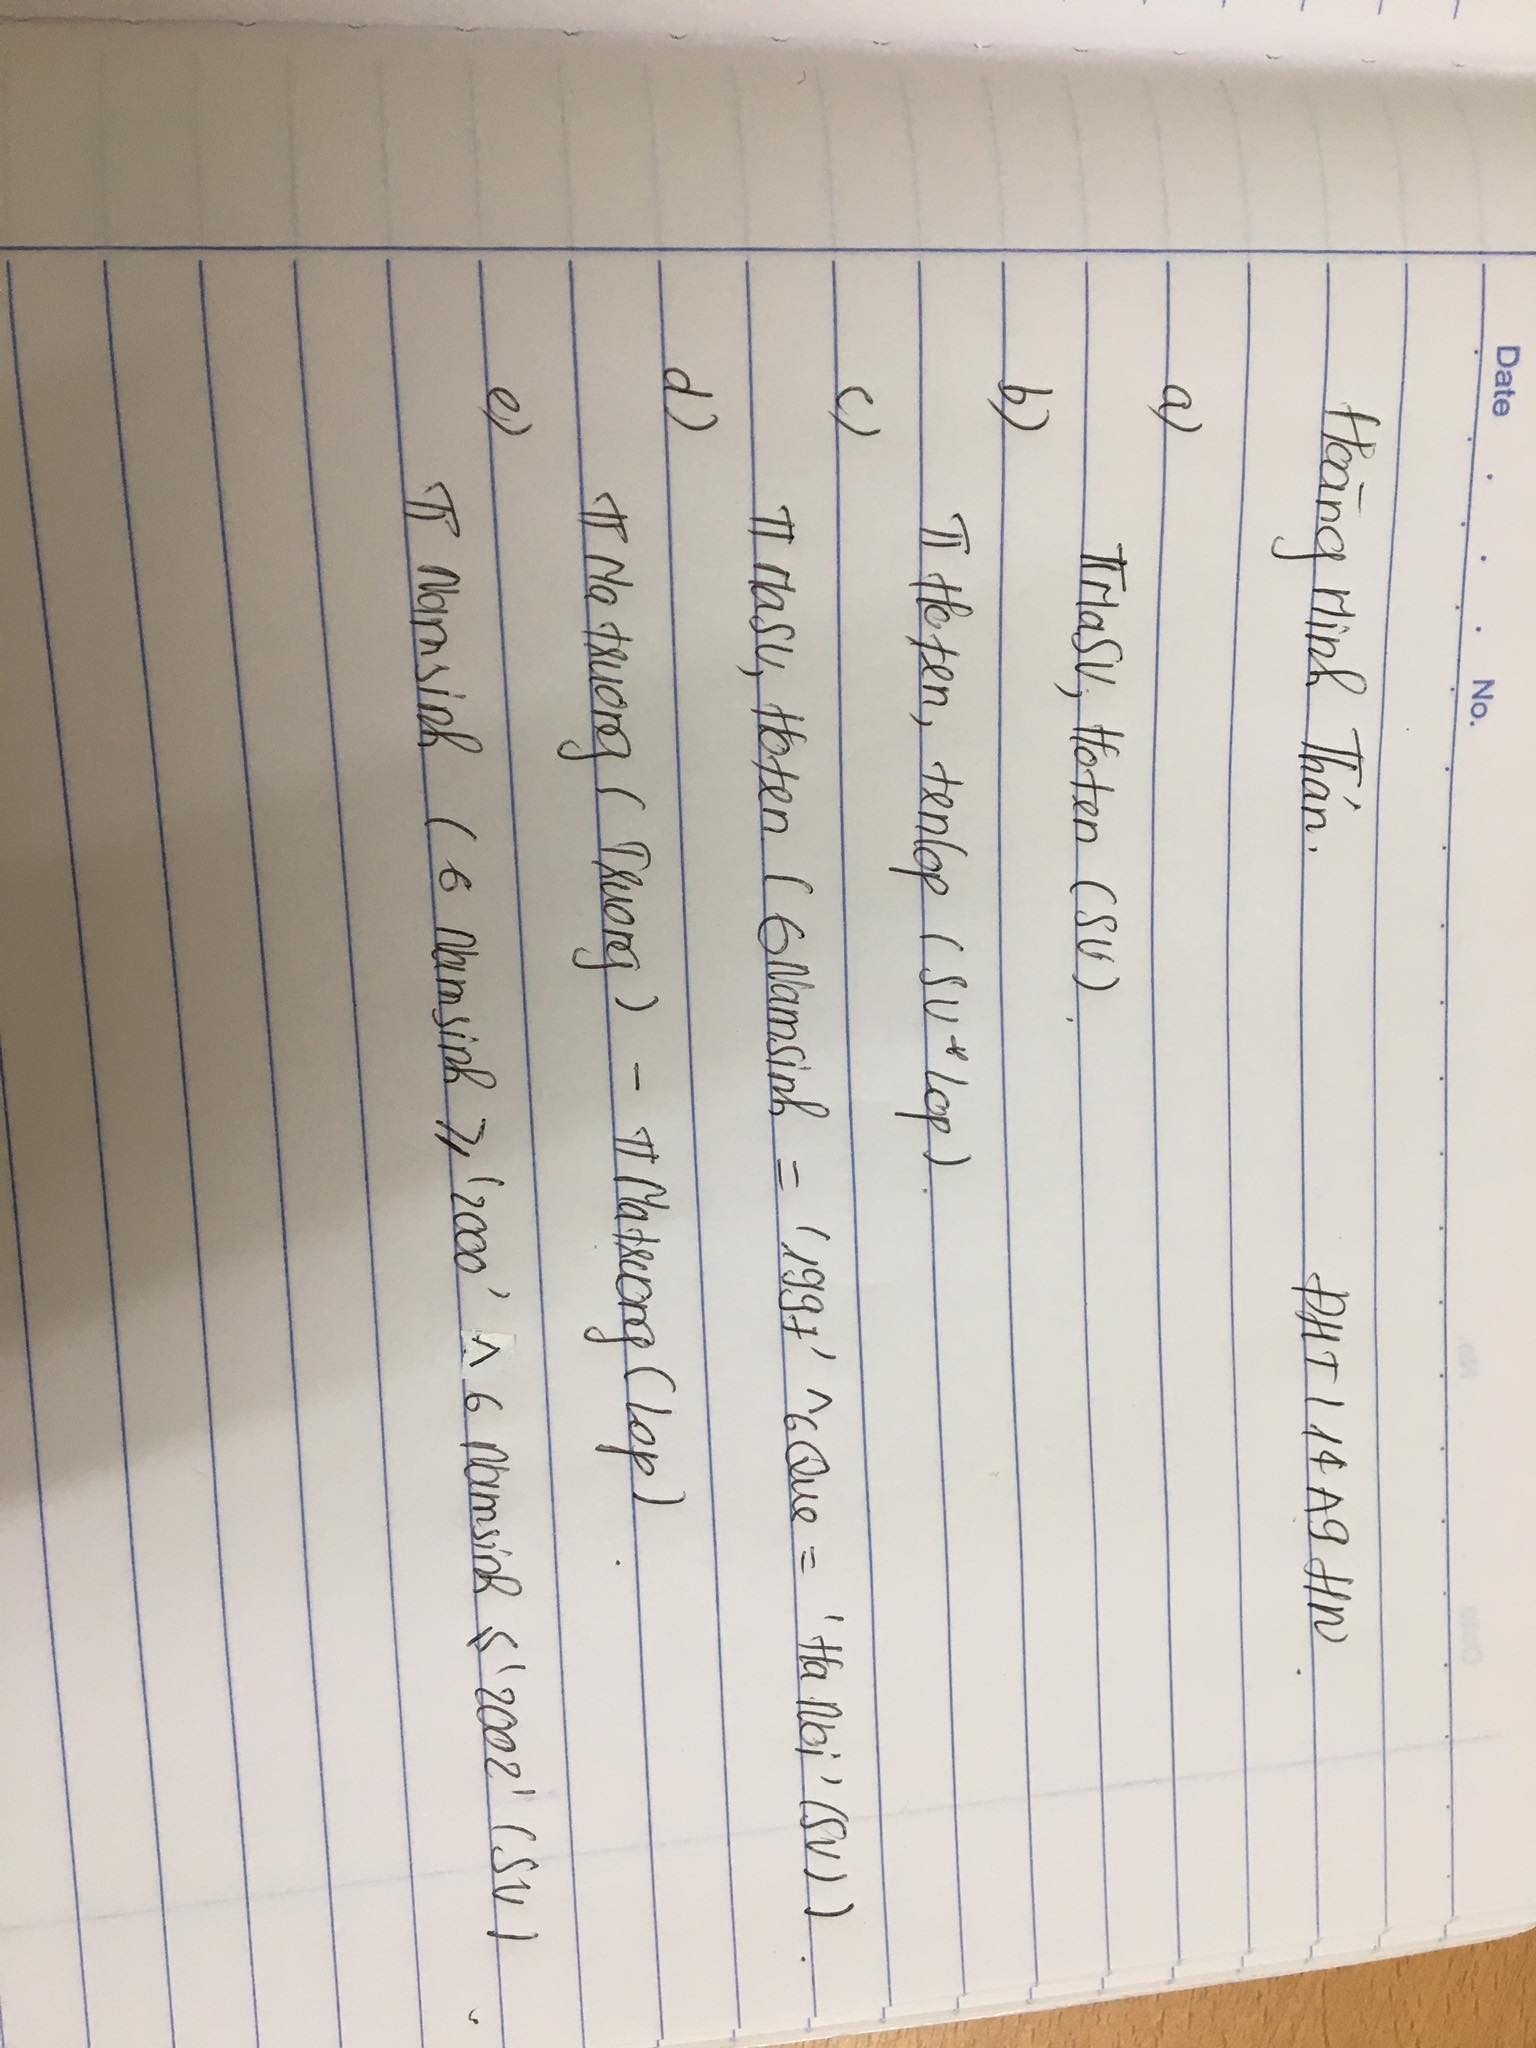 Date No.
Hoàng Minh Thán. ĐHTI14A9HN
a)
π MaSV, Hoten (SV).
b)
π Hoten, tenlop (SV * Lop).
c)
π MaSV, Hoten (σ Namsinh = '1997' ^ σ Que = 'Ha Noi' (SV)).
d)
π Matruong (Truong) - π Matruong (Lop).
e)
π Namsinh (σ Namsinh ⩾ '2000' ^ σ Namsinh ⩽ '2002' (SV)